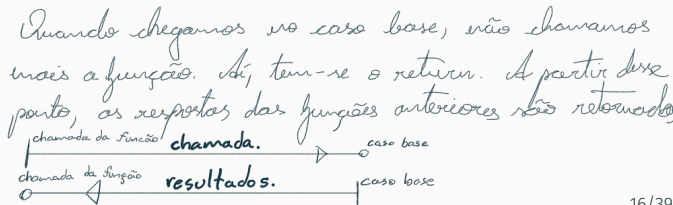 Quando chegamos no caso base, não chamamos
mais a função. Aí, tem-se o return. A partir desse
ponto, as respostas das funções anteriores são retornado
chamada da função chamada. caso base
chamada da função resultados. caso base
16/39